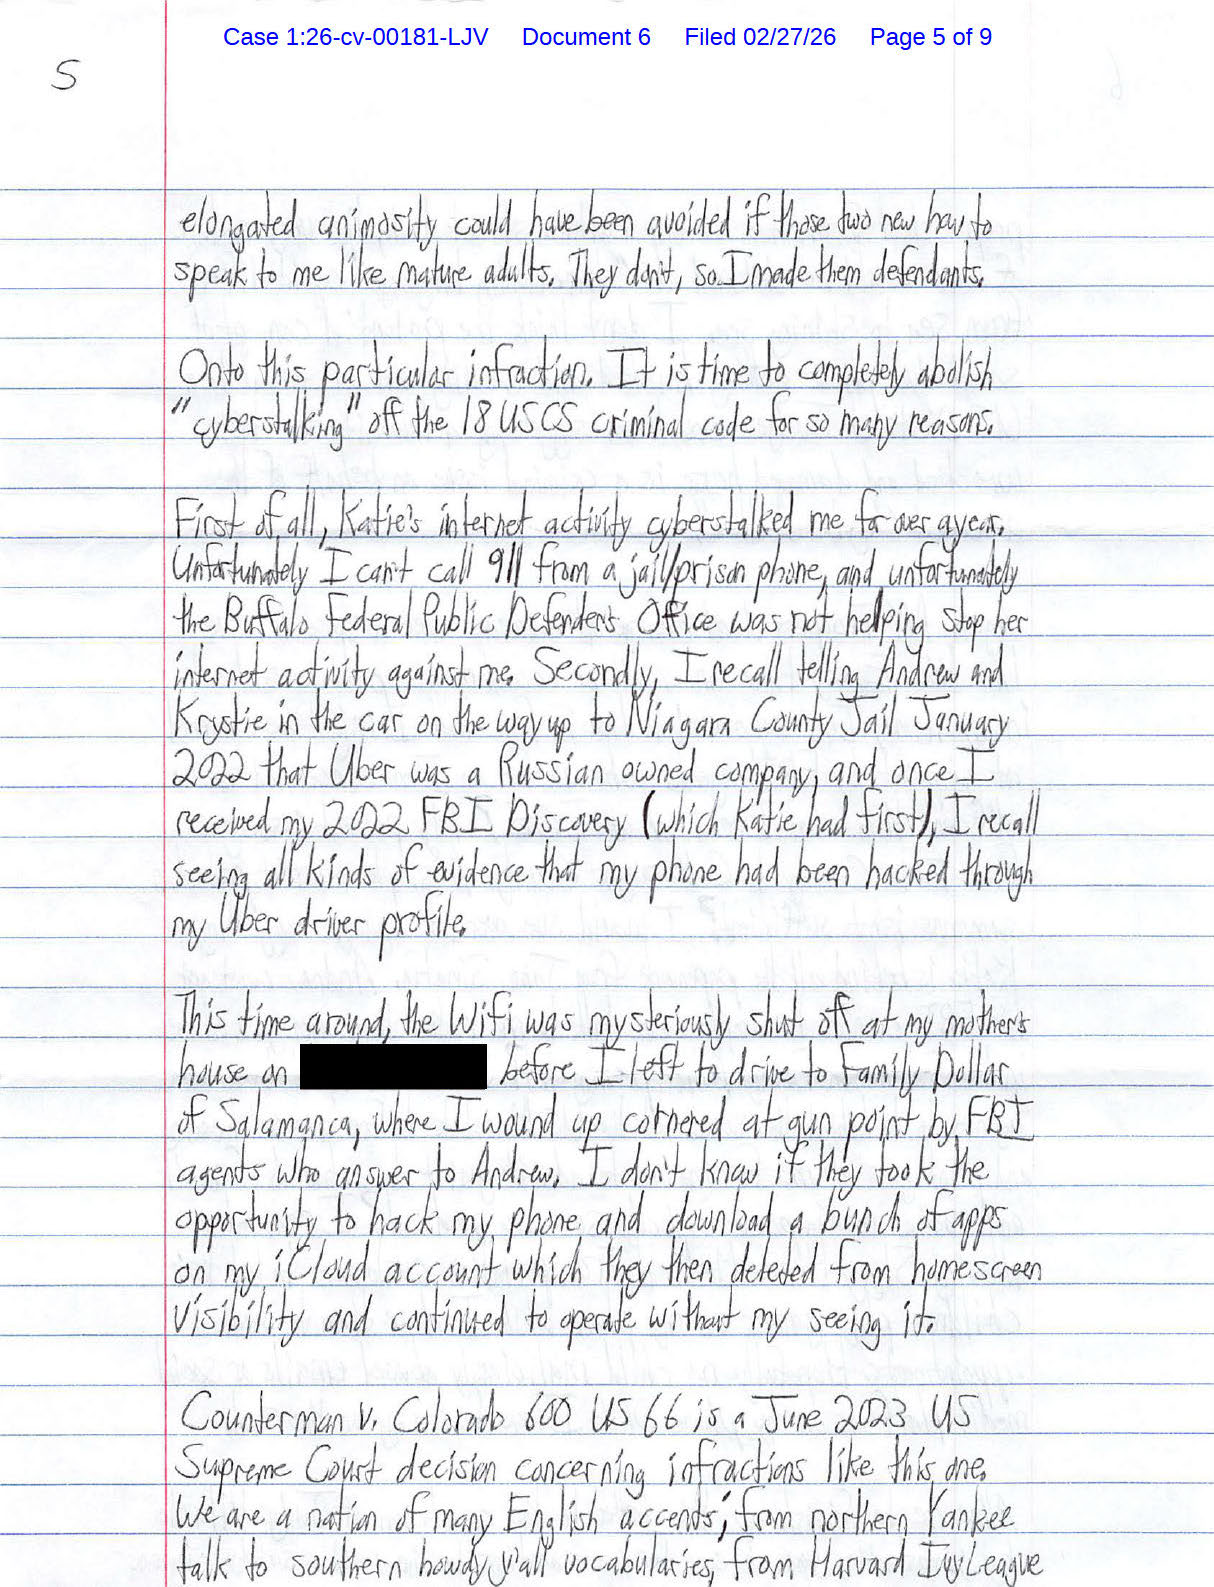 Case 1:26-cv-00181-LJV Document 6 Filed 02/27/26 Page 5 of 9
5
elongated animosity could have been avoided if those two new how to
speak to me like mature adults. They don't, so I made them defendants.
Onto this particular infraction. It is time to completely abolish
"cyberstalking" off the 18 USCS criminal code for so many reasons.
First of all, Katie's internet activity cyberstalked me for over a year.
Unfortunately I can't call 911 from a jail/prison phone, and unfortunately
the Buffalo Federal Public Defender's Office was not helping stop her
internet activity against me. Secondly, I recall telling Andrew and
Krystie in the car on the way up to Niagara County Jail January
2022 that Uber was a Russian owned company, and once I
received my 2022 FBI Discovery (which Katie had first), I recall
seeing all kinds of evidence that my phone had been hacked through
my Uber driver profile.
This time around, the WiFi was mysteriously shut off at my mother's
house on before I left to drive to Family Dollar
of Salamanca, where I wound up cornered at gun point by FBI
agents who answer to Andrew. I don't know if they took the
opportunity to hack my phone and download a bunch of apps
on my iCloud account which they then deleted from homescreen
visibility and continued to operate without my seeing it.
Counterman v. Colorado 600 US 66 is a June 2023 US
Supreme Court decision concerning infractions like this one.
We are a nation of many English accents; from northern Yankee
talk to southern howdy y'all vocabularies, from Harvard Ivy League